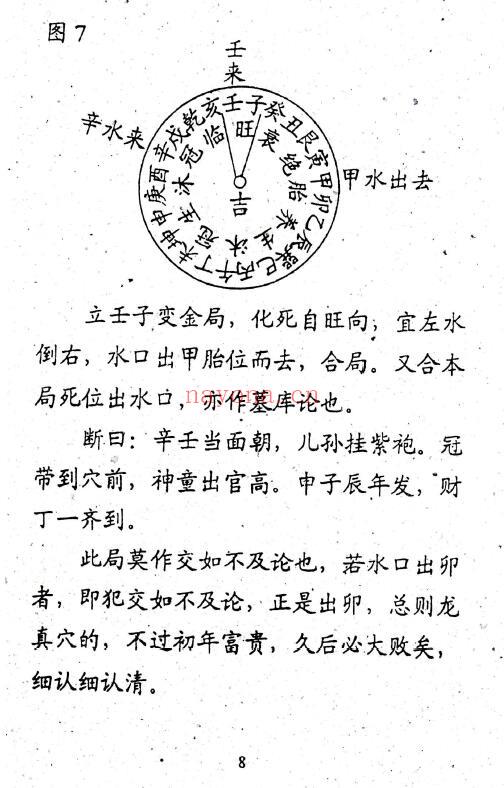 图7
壬
来
辛水来
甲水出去
亥壬子癸丑艮寅甲卯乙辰巽巳丙午丁未坤申庚酉辛戌乾
临旺衰绝胎养生沐冠生沐冠
吉
立壬子变金局，化死自旺向，宜左水
倒右，水口出甲胎位而去，合局。又合本
局死位出水口，亦作墓库论也。
nayona.cn
断曰：辛壬当面朝，儿孙挂紫袍。冠
带到穴前，神童出官高。申子辰年发，财
丁一齐到。
此局莫作交如不及论也，若水口出卯
者，即犯交如不及论，正是出卯，总则龙
真穴的，不过初年富贵，久后必大败矣，
细认细认清。
8